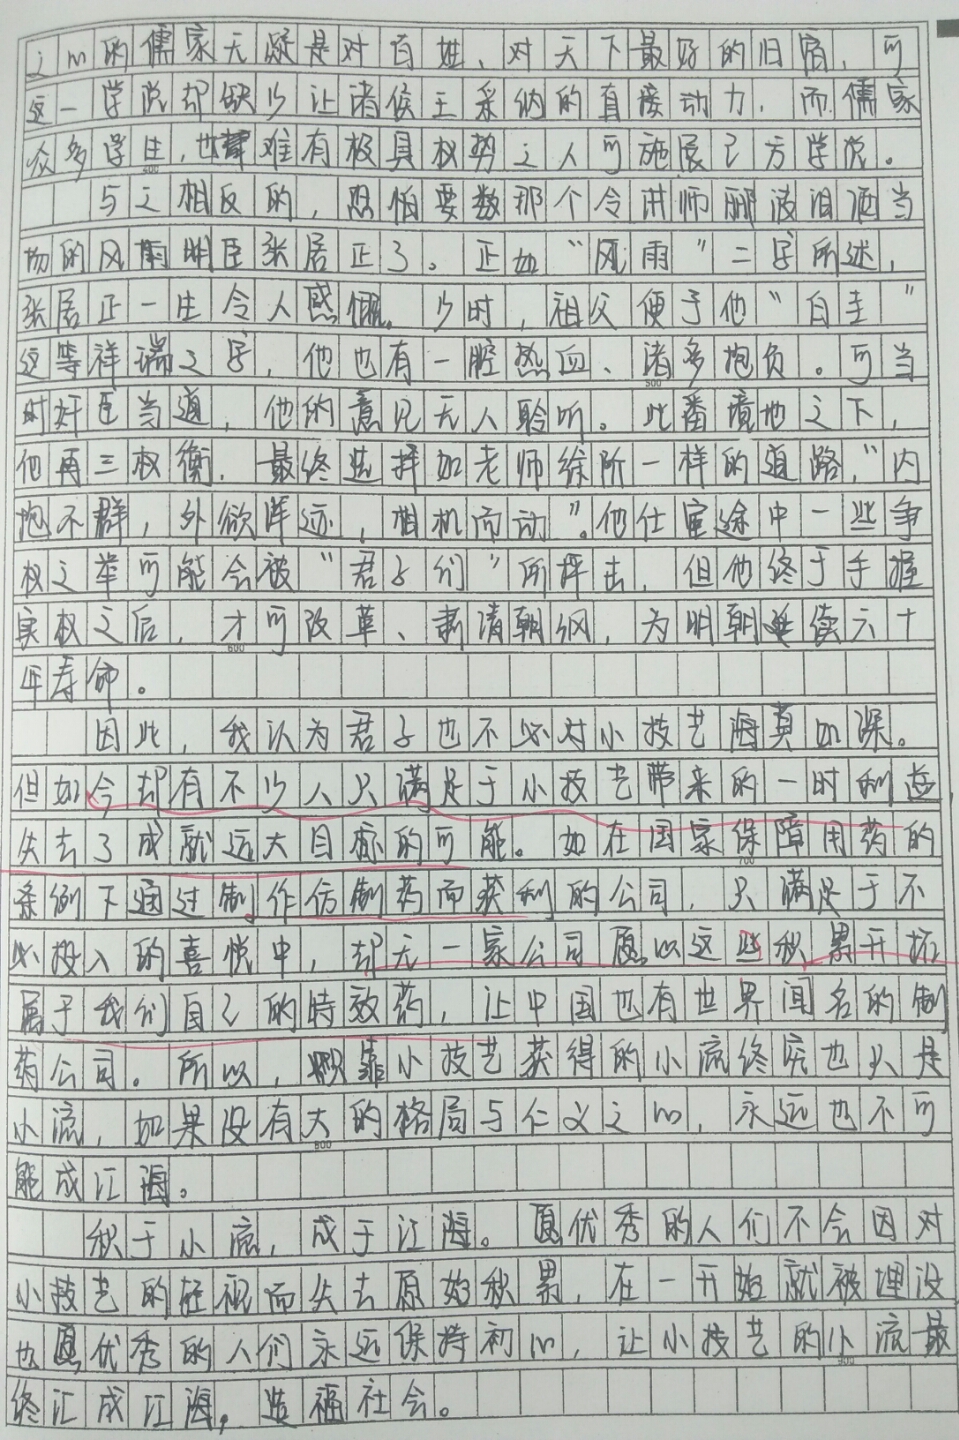 之心的儒家无疑是对百姓、对天下最好的归宿，可
这一学说却缺少让诸侯王采纳的直接动力，而儒家
众多学生，也难有极具权势之人可施展己方学说。
与之相反的，恐怕要数那个令讲师郦波泪洒当
场的风雨明臣张居正了。正如“风雨”二字所述，
张居正一生令人感佩。少时，祖父便予他“白圭”
这等祥瑞之字，他也有一腔热血、诸多抱负。可当
时奸臣当道，他的意见无人聆听。此番境地之下，
他再三权衡，最终选择如老师徐阶一样的道路，“内
抱不群，外欲浑迹，相机而动”。他仕宦途中一些争
权之举可能会被“君子们”所抨击，但他终于手握
实权之后，才可改革、肃清朝纲，为明朝续六十
年寿命。
因此，我认为君子也不必对小技艺海莫如深。
但如今却有不少人只满足于小技艺带来的一时利益，
失去了成就远大目标的可能。如在国家保障用药的
条例下通过制作仿制药而获利的公司，只满足于不
必投入的喜悦中，却无一家公司愿以这些积累开拓
属于我们自己的特效药，让中国也有世界闻名的制
药公司。所以，靠小技艺获得的小流终究也只是
小流，如果没有大的格局与仁义之心，永远也不可
能成江海。
积于小流，成于江海。愿优秀的人们不会因对
小技艺的轻视而失去原始积累，在一开始就被埋没
也愿优秀的人们永远保持初心，让小技艺的小流最
终汇成江海，造福社会。
500
500
600
700
800
900